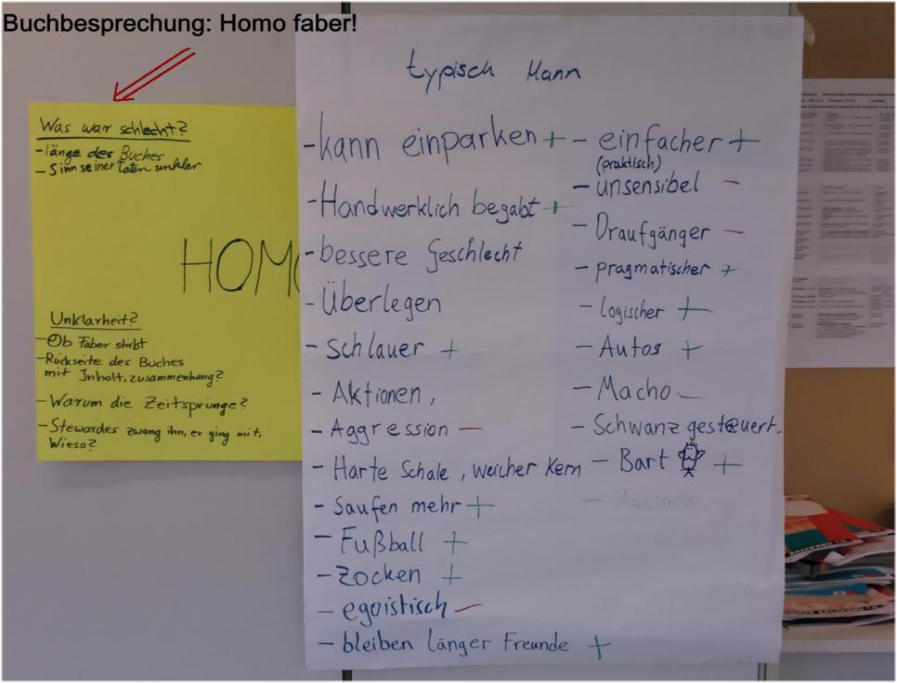 Buchbesprechung: Homo faber!
Was war schlecht?
-länge des Buches
-Sinn seiner Taten unklar
HOMO
Unklarheit?
-Ob Faber stirbt
-Rückseite des Buches
mit Inhalt, zusammenhang?
-Warum die Zeitsprünge?
-Stewardes zwang ihn, er ging mit,
Wieso?
typisch Mann
-kann einparken +
-Handwerklich begabt +
-bessere Geschlecht
-Überlegen
-schlauer +
-Aktionen,
-Aggression -
-Harte Schale, weicher Kern
-Saufen mehr +
-Fußball +
-Zocken +
-egoistisch -
-bleiben länger Freunde +
-einfacher +
(praktisch)
-unsensibel -
-Draufgänger -
-pragmatischer +
-logischer +
-Autos +
-Macho -
-Schwanz gesteuert -
-Bart +